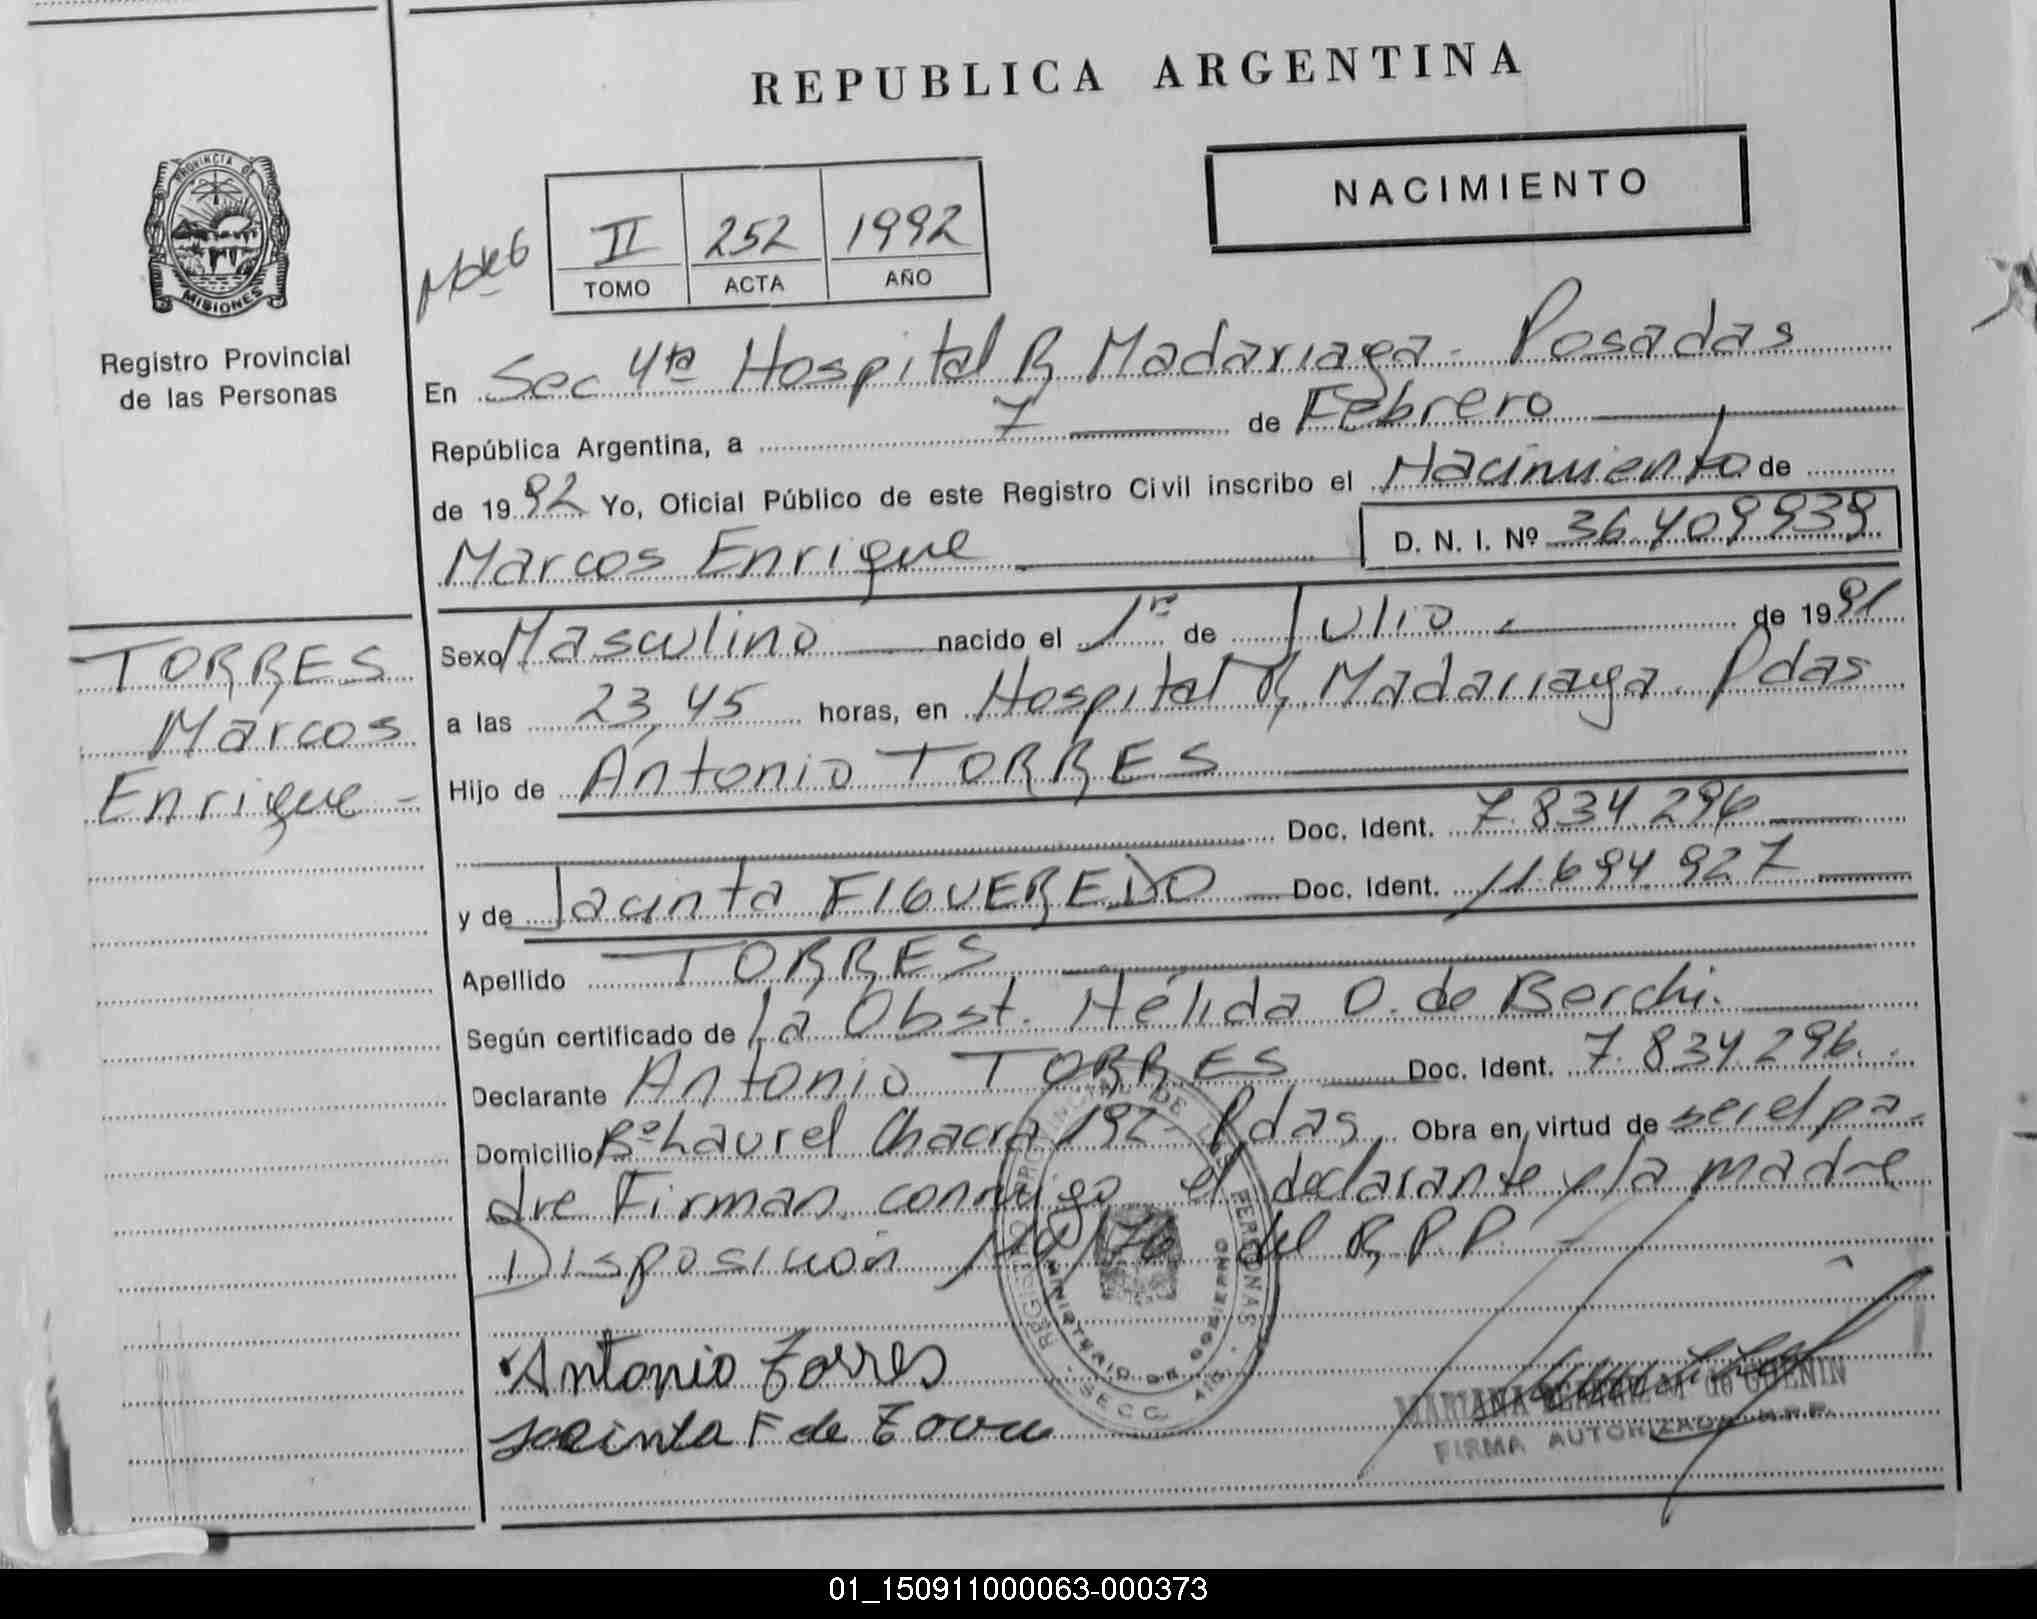 REPUBLICA ARGENTINA
NACIMIENTO
PROVINCIA DE
MISIONES
Registro Provincial
de las Personas
II 252 1992
TOMO ACTA AÑO
En Sec 4ta Hospital R Madariaga - Posadas
República Argentina, a 7 de Febrero
de 1992 Yo, Oficial Público de este Registro Civil inscribo el Nacimiento de
Marcos Enrique D. N. I. Nº 36.409939
TORRES
Marcos
Enrique -
Sexo Masculino nacido el 1ro de Julio de 1991
a las 23,45 horas, en Hospital R, Madariaga. Pdas
Hijo de Antonio TORRES
Doc. Ident. 7.834.296
y de Jacinta FIGUEREDO Doc. Ident. 11.694.927
Apellido TORRES
Según certificado de la Obst. Hélida O. de Borchi.
Declarante Antonio TORRES Doc. Ident. 7.834.296.
Domicilio Bº Laurel Chacra 192- Pdas Obra en virtud de ser el pa-
dre Firman conmigo el declarante y la madre
Disposición del R.P.P. -
REGISTRO PROVINCIAL DE LAS PERSONAS
MINISTERIO DE GOBIERNO
SECC. 4ta.
Antonio Torres
Jacinta F de Torres
MARIANA de GUENIN
FIRMA AUTORIZADA R.P.P.
01_150911000063-000373